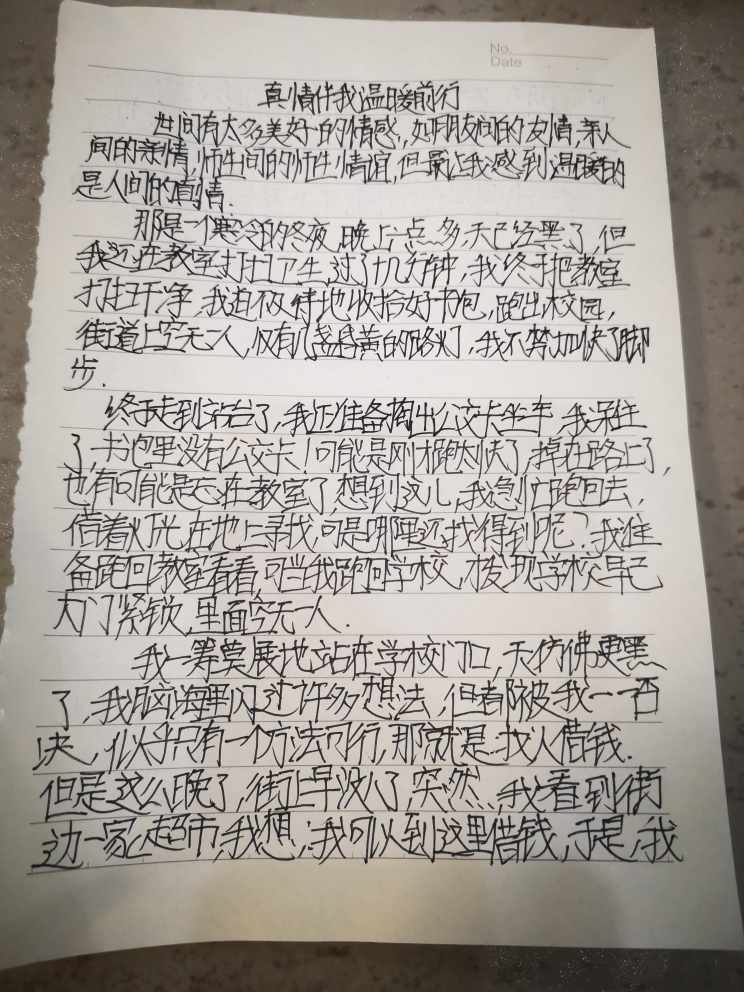 No.
Date
真情伴我温暖前行
世间有太多美好的情感,如朋友间的友情,亲人
间的亲情,师生间的师生情谊,但最让我感到温暖的
是人间的真情.
那是一个寒冷的冬夜,晚上六点多,天已经黑了,但
我还在教室打扫卫生,过了十几分钟,我终于把教室
打扫干净,我迫不及待地收拾好书包,跑出校园,
街道上空无一人,仅有几盏昏黄的路灯,我不禁加快了脚
步.
终于走到站台了,我正准备掏出公交卡坐车,我呆住
了,书包里没有公交卡!可能是刚才跑太快了,掉在路上了,
也有可能是忘在教室了,想到这儿,我急忙跑回去,
借着灯光在地上寻找,可是哪里还找得到呢?我准
备跑回教室看看,可当我跑回学校,发现学校早已
大门紧锁,里面空无一人.
我一筹莫展地站在学校门口,天仿佛更黑
了,我脑海里闪过许多想法,但都被我一一否
决,似乎只有一个方法可行,那就是找人借钱.
但是这么晚了,街上早没人了,突然,我看到街
边一家超市,我想,我可以到这里借钱,于是,我